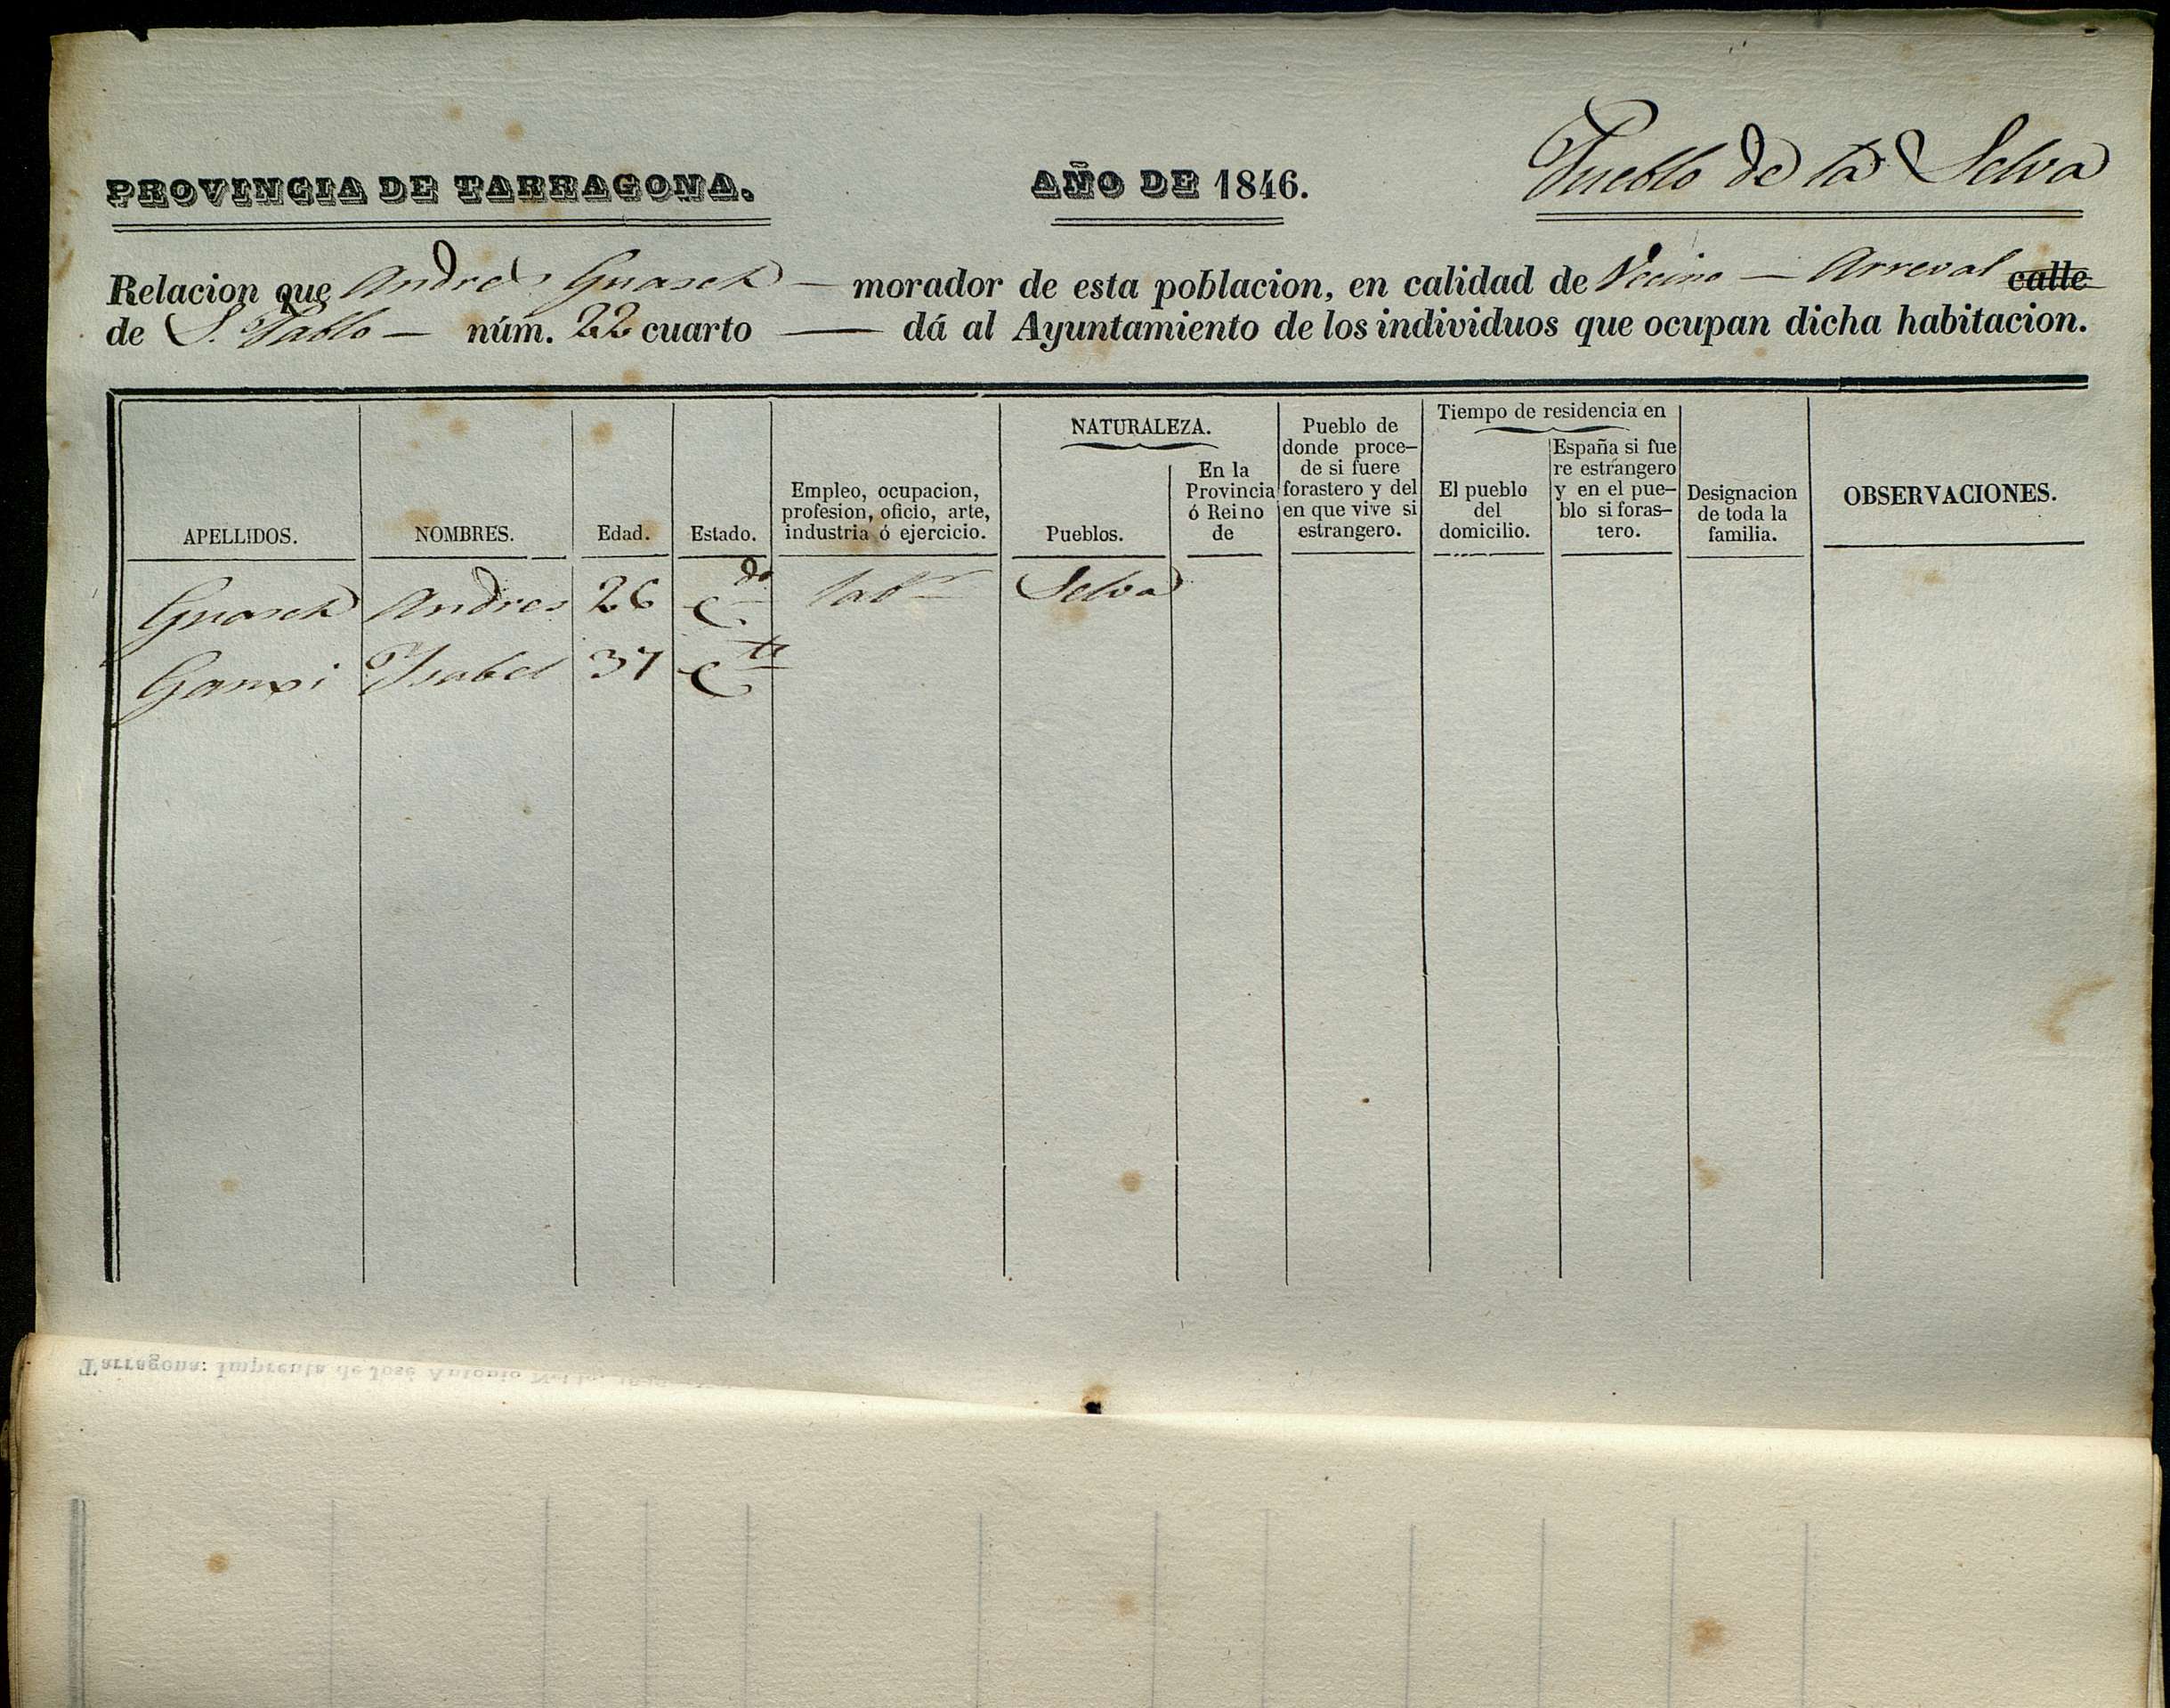 PROVINCIA DE TARRAGONA. AÑO DE 1846. Pueblo de la Selva
Relacion que Andres Guasch — morador de esta poblacion, en calidad de Vecino — Arreval calle
de S. Pablo — núm. 22 cuarto — dá al Ayuntamiento de los individuos que ocupan dicha habitacion.
APELLIDOS.
NOMBRES.
Edad.
Estado.
Empleo, ocupacion,
profesion, oficio, arte,
industria ó ejercicio.
NATURALEZA.
Pueblos.
En la
Provincia
ó Reino
de
Pueblo de
donde proce-
de si fuere
forastero y del
en que vive si
estrangero.
Tiempo de residencia en
El pueblo
del
domicilio.
España si fue
re estrangero
y en el pue-
blo si foras-
tero.
Designacion
de toda la
familia.
OBSERVACIONES.
Guasch Andres 26 Cdo Labr Selva
Ganxi Ysabel 37 Cta
Tarragona: Imprenta de José Antonio